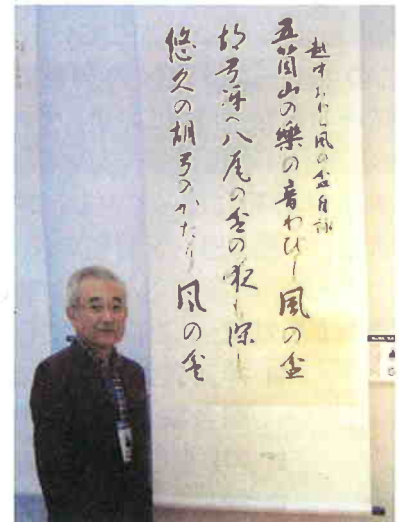 越中おわら風の盆自詠
五箇山の楽の音わびし風の盆
胡弓冴へ八尾の盆の歌し深し
悠久の胡弓のかたり風の盆